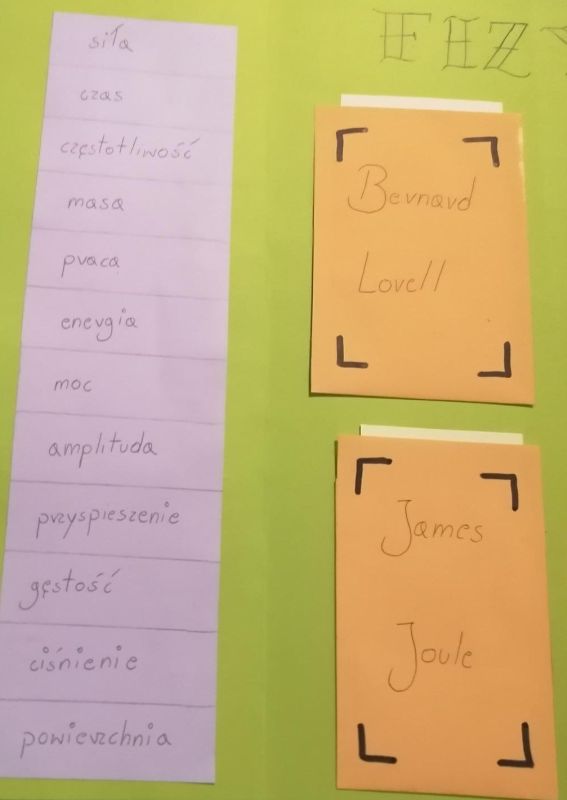 siła
czas
częstotliwość
masa
praca
energia
moc
amplituda
przyspieszenie
gęstość
ciśnienie
powierzchnia
FIZY
Bernard
Lovell
James
Joule